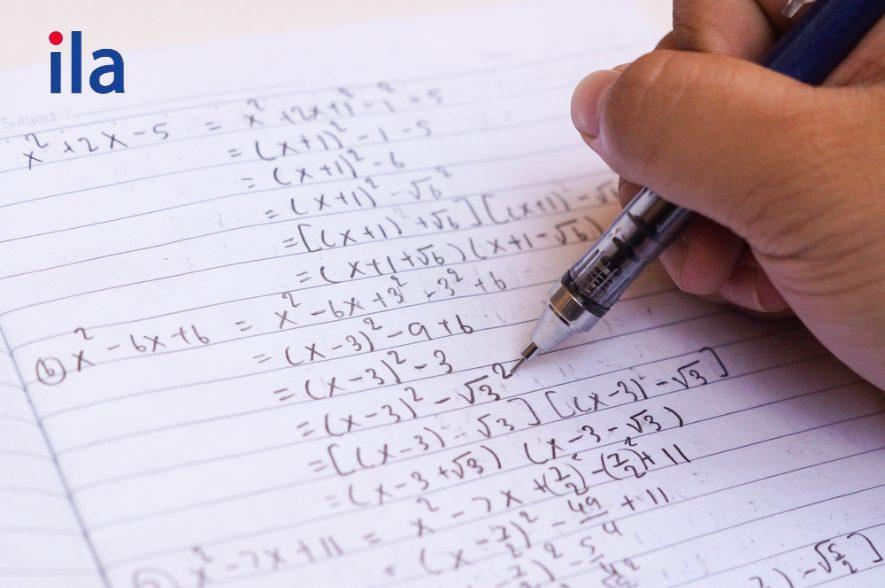 ila
Subject :
x² + 2x - 5 = x² + 2x + 1² - 1² - 5
= (x+1)² - 1 - 5
= (x+1)² - 6
= (x+1)² - √6²
= [(x+1)² + √6] [(x+1)² - √6
= (x+1+√6) (x+1-√6)
(b) x² - 6x + 6 = x² - 6x + 3² - 3² + 6
= (x-3)² - 9 + 6
= (x-3)² - 3
= (x-3)² - √3²
= [(x-3) - √3] [(x-3) - √3]
= (x-3+√3) (x-3-√3)
x² - 7x + 11 = x² - 7x + (7/2)² - (7/2)² + 11
= (x-7/2)² - 49/4 + 11